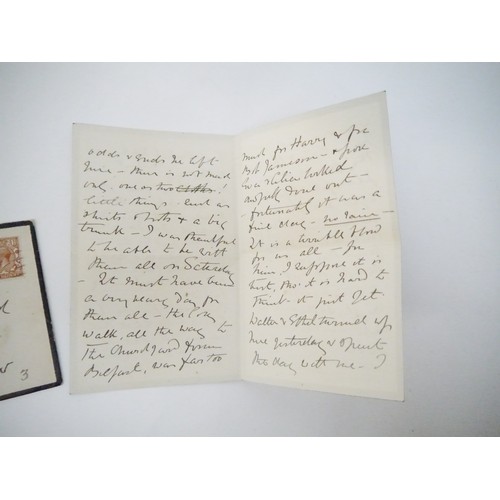 odds & ends he left
here - there is not much
only one or two
little things - such as
shirts & a big
trunk - I was thankful
to be able to be with
them all on Saturday
- It must have been
a very weary day for
them all - the long
walk, all the way to
the Churchyard from
Belfast, was far too
much for Harry & for
Jameson - & poor
looked
awfully done out -
fortunately it was a
fine day - no rain -
It is a terrible blow
for us all - for
him, I suppose it is
best, tho' it is hard to
think it just yet.
Walter & Ethel turned up
here yesterday & spent
the day with me - I
3